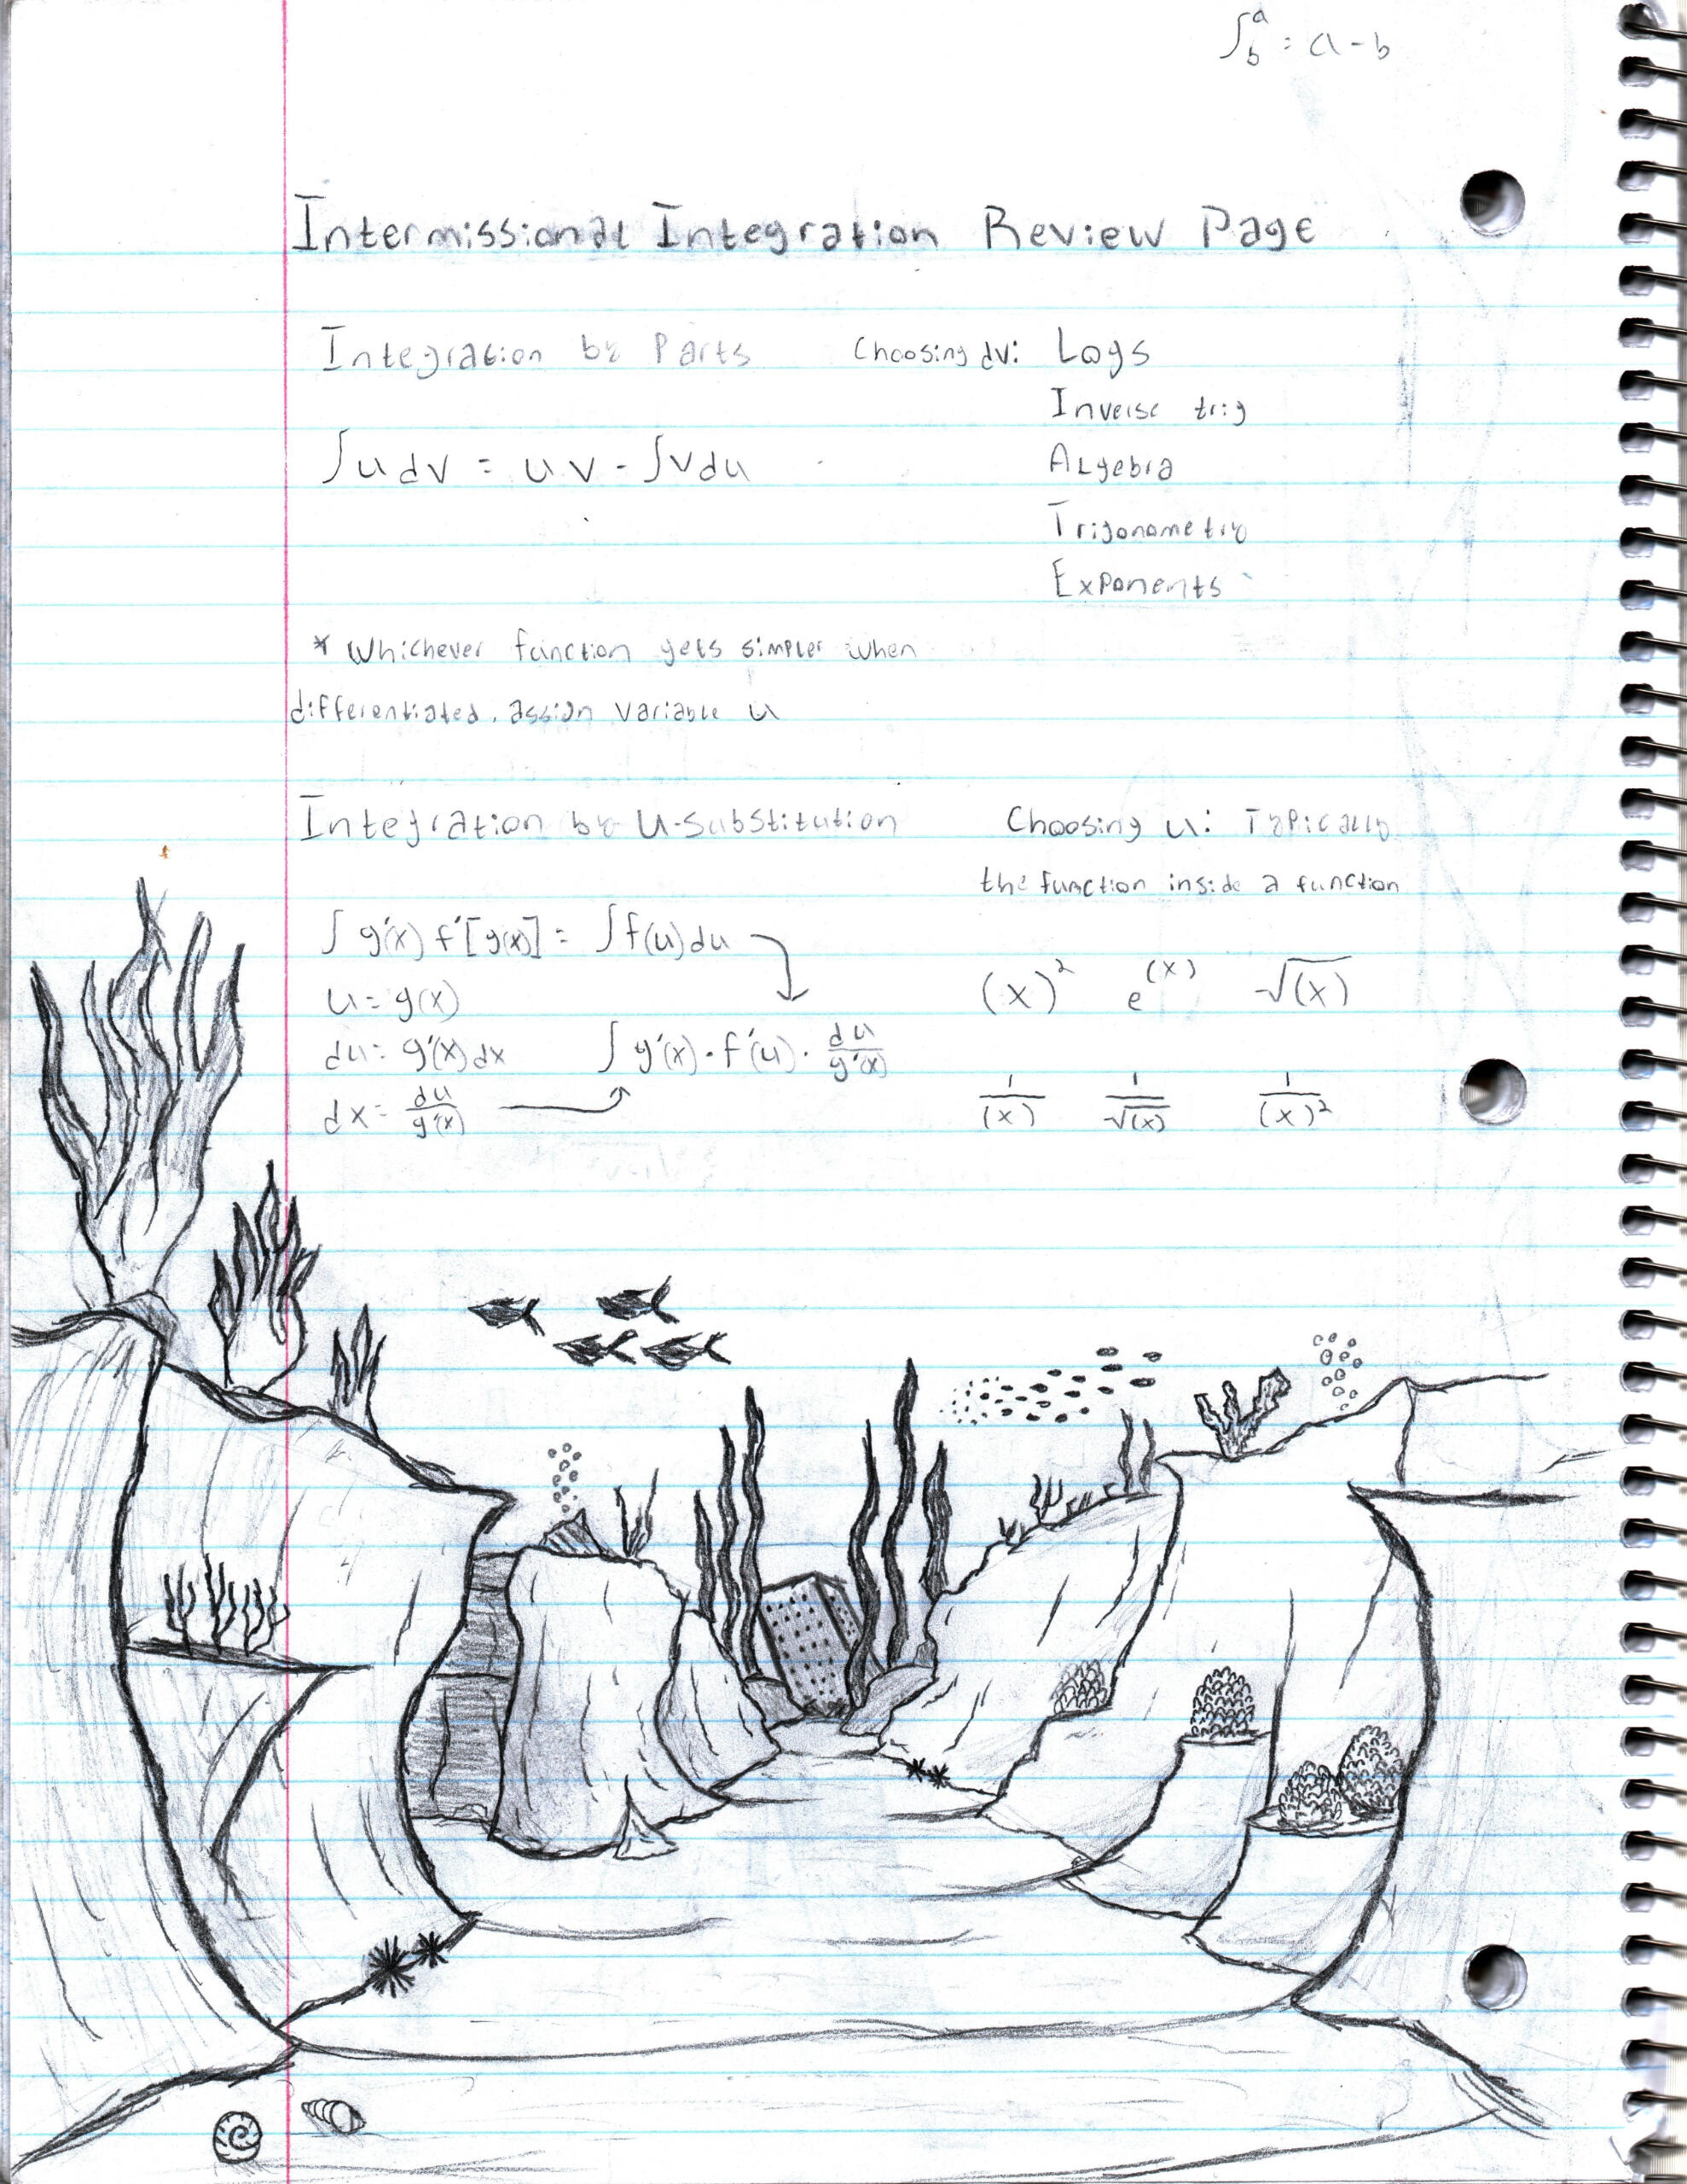 ∫ᵃ_b = a - b
Intermissional Integration Review Page
Integration by Parts Choosing dv: Logs
Inverse trig
∫u dv = uv - ∫v du Algebra
Trigonometry
Exponents
* Whichever function gets simpler when
differentiated, assign variable u
Integration by U-Substitution Choosing u: Typically
the function inside a function
∫ g'(x) f'[g(x)] = ∫ f(u) du
u = g(x) (x)² e^(x) √(x)
du = g'(x) dx ∫ g'(x) · f'(u) · du/g'(x)
dx = du/g'(x) 1/(x) 1/√(x) 1/(x)²